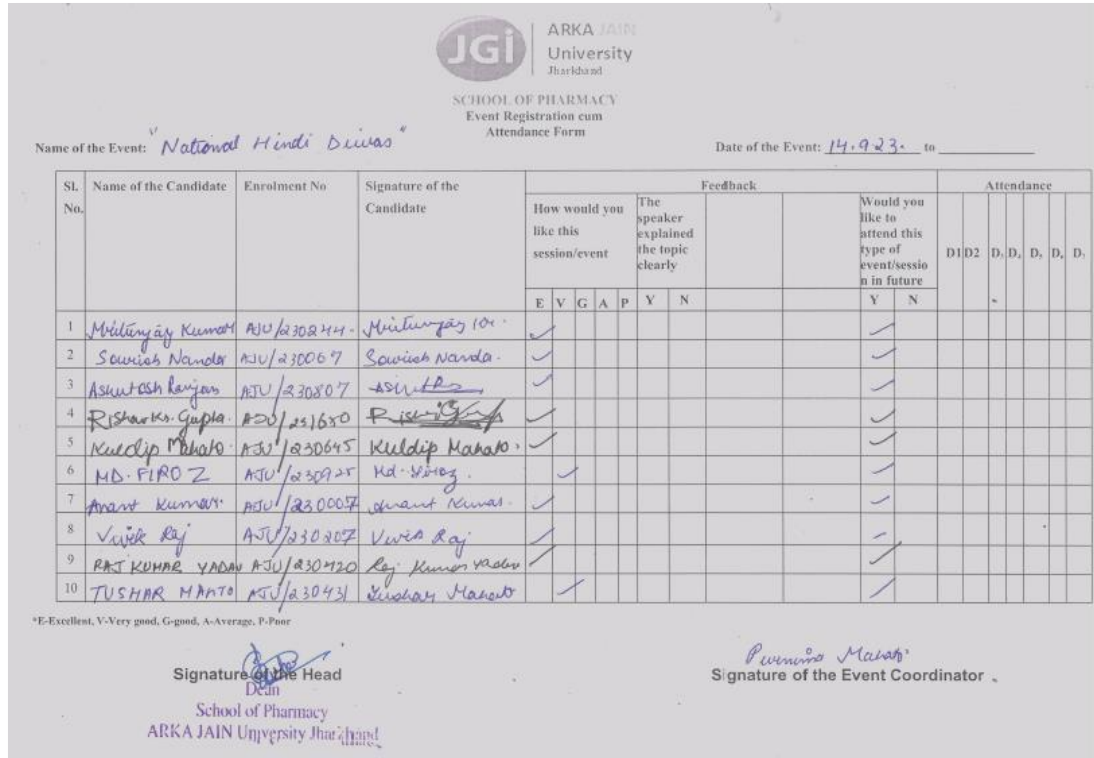 JGi ARKA JAIN
University
Jharkhand
SCHOOL OF PHARMACY
Event Registration cum
Attendance Form
Name of the Event: "National Hindi Diwas" Date of the Event: 14.9.23. to
Sl. No. Name of the Candidate Enrolment No Signature of the Candidate Feedback Attendance
How would you like this session/event The speaker explained the topic clearly Would you like to attend this type of event/sessio n in future D1 D2 D3 D4 D5 D6 D7
E V G A P Y N Y N
1 Mritunjay Kumar AJU/230244 Mritunjay Kr.
2 Sourish Nanda AJU/230067 Sourish Nanda.
3 Ashutosh Ranjan AJU/230807
4 Gupta. AJU/231680
5 Kuldip Mahato. AJU/230645 Kuldip Mahato.
6 MD. FIROZ AJU/230925 Md. Firoz.
7 Anant Kumar. AJU/230007 Anant Kumar.
8 Vivek Raj AJU/230207 Vivek Raj
9 RAJ KUMAR YADAV AJU/230420 Raj Kumar Yadav
10 TUSHAR MAHTO AJU/230431 Tushar Mahato
*E-Excellent, V-Very good, G-good, A-Average, P-Poor
Mahato
Signature of the Head Signature of the Event Coordinator
Dean
School of Pharmacy
ARKA JAIN University Jharkhand